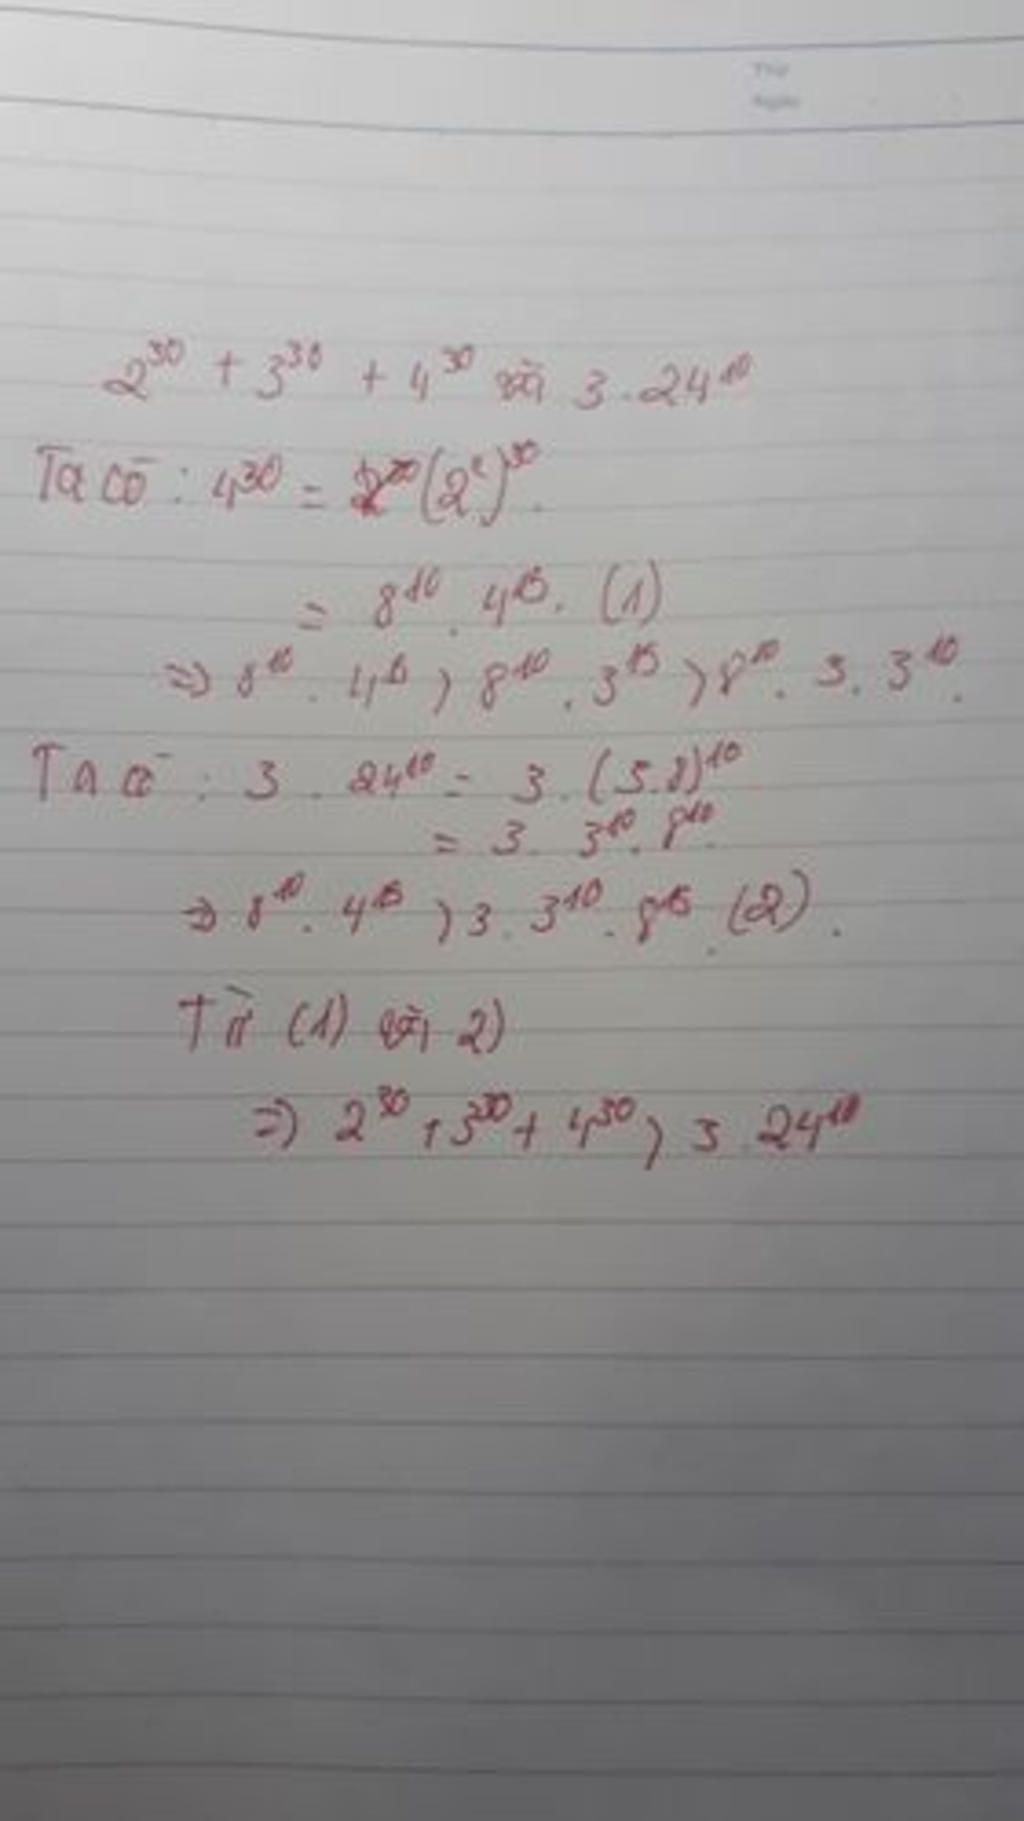 Thứ
Ngày
2³⁰ + 3³⁰ + 4³⁰ và 3.24¹⁰
Ta có : 4³⁰ = (2²)³⁰.
= 8¹⁰ . 4¹⁵. (1)
=> 8¹⁰ . 4¹⁵ > 8¹⁰ . 3¹⁵ > 8¹⁰ . 3 . 3¹⁰.
Ta có : 3 . 24¹⁰ = 3 . (3.8)¹⁰
= 3 . 3¹⁰ . 8¹⁰.
=> 8¹⁰ . 4¹⁵ > 3 . 3¹⁰ . 8¹⁵ . (2).
Từ (1) và 2)
=> 2³⁰ + 3³⁰ + 4³⁰ > 3 . 24¹⁰